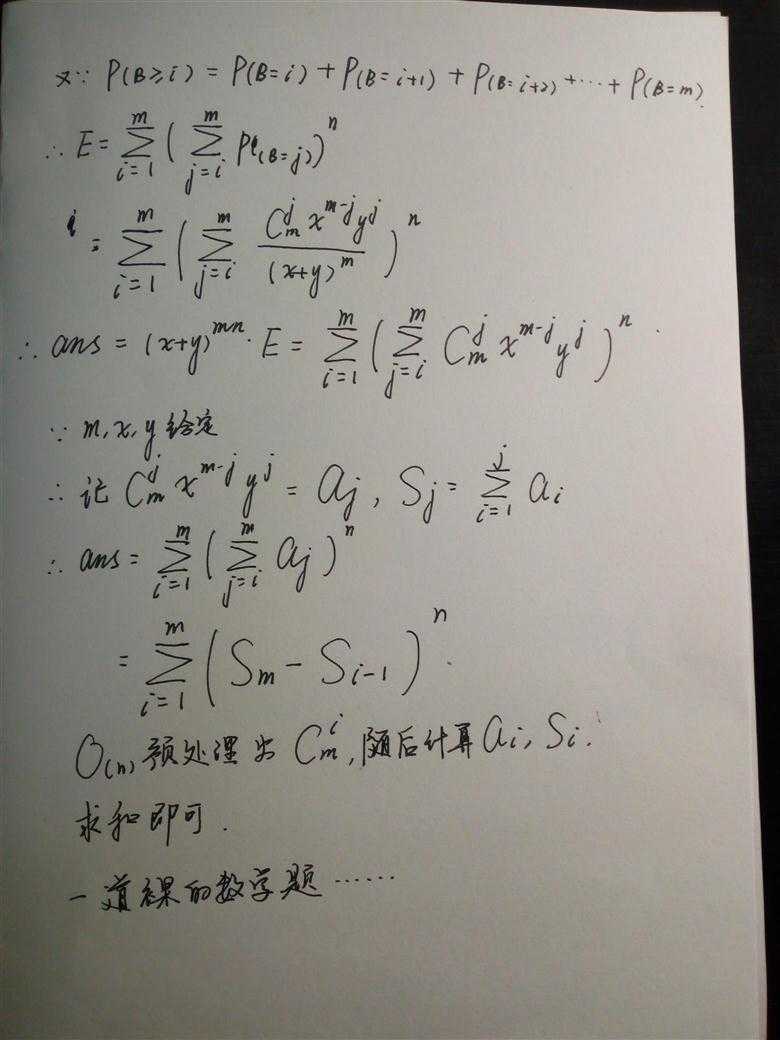 又∵ P(B≥i) = P(B=i) + P(B=i+1) + P(B=i+2) + ⋯ + P(B=m).
∴ E = \sum_{i=1}^{m} ( \sum_{j=i}^{m} P(B=j) )^n
= \sum_{i=1}^{m} ( \sum_{j=i}^{m} \frac{C_m^j x^{m-j} y^j}{(x+y)^m} )^n
∴ ans = (x+y)^{mn} · E = \sum_{i=1}^{m} ( \sum_{j=i}^{m} C_m^j x^{m-j} y^j )^n.
∵ m, x, y 给定
∴ 记 C_m^j x^{m-j} y^j = a_j, S_j = \sum_{i=1}^{j} a_i
∴ ans = \sum_{i=1}^{m} ( \sum_{j=i}^{m} a_j )^n
= \sum_{i=1}^{m} ( S_m - S_{i-1} )^n.
O(n) 预处理出 C_m^i, 随后计算 a_i, S_i.
求和即可.
一道裸的数学题⋯⋯